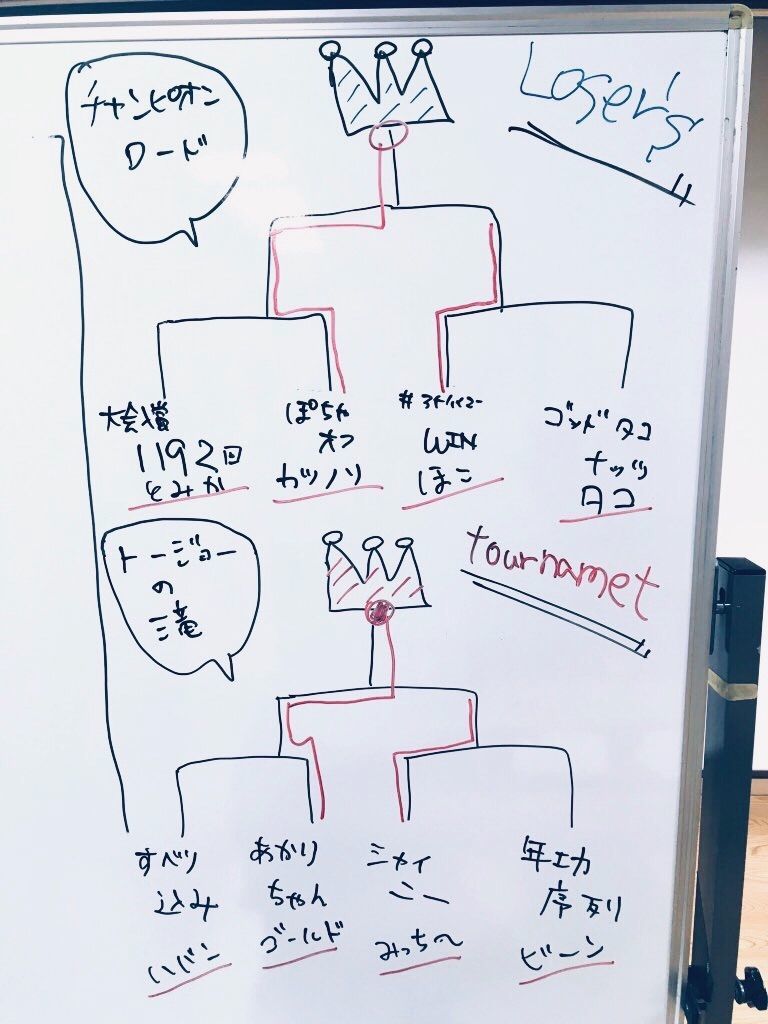 チャンピオン
ロード
Loser's
大会入賞
1192回
とみか
ぽちゃ
オフ
カツノリ
WIN
ほこ
ゴッドタコ
ナッツ
タコ
トージョー
の
三竜
tournamet
すべり
込み
ハバン
あかり
ちゃん
ゴールド
ミカィ
ニー
みっちー
年功
序列
ビーン